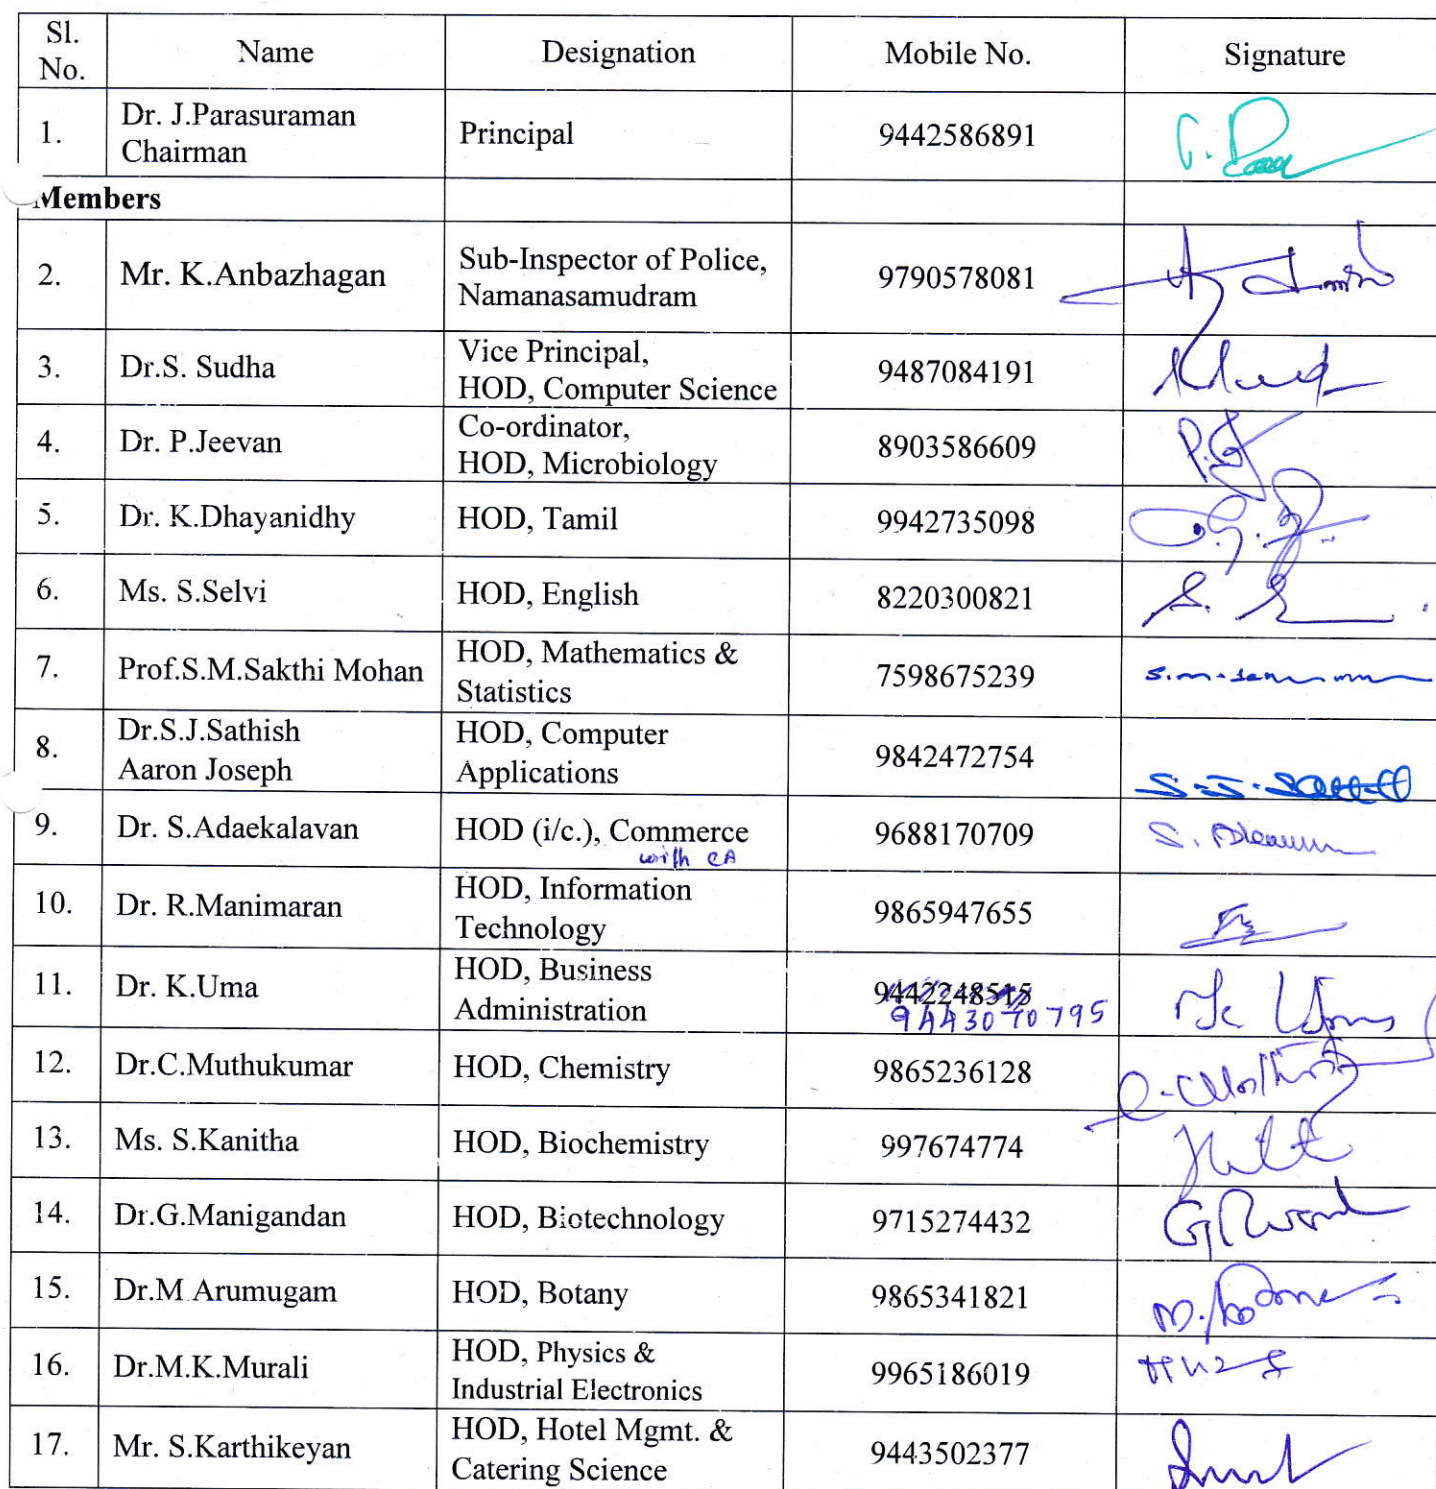 Sl. No. Name Designation Mobile No. Signature
1. Dr. J.Parasuraman Chairman Principal 9442586891
Members
2. Mr. K.Anbazhagan Sub-Inspector of Police, Namanasamudram 9790578081
3. Dr.S. Sudha Vice Principal, HOD, Computer Science 9487084191
4. Dr. P.Jeevan Co-ordinator, HOD, Microbiology 8903586609
5. Dr. K.Dhayanidhy HOD, Tamil 9942735098
6. Ms. S.Selvi HOD, English 8220300821
7. Prof.S.M.Sakthi Mohan HOD, Mathematics & Statistics 7598675239
8. Dr.S.J.Sathish Aaron Joseph HOD, Computer Applications 9842472754
9. Dr. S.Adaekalavan HOD (i/c.), Commerce with CA 9688170709
10. Dr. R.Manimaran HOD, Information Technology 9865947655
11. Dr. K.Uma HOD, Business Administration 9442248515 9443070795
12. Dr.C.Muthukumar HOD, Chemistry 9865236128
13. Ms. S.Kanitha HOD, Biochemistry 997674774
14. Dr.G.Manigandan HOD, Biotechnology 9715274432
15. Dr.M Arumugam HOD, Botany 9865341821
16. Dr.M.K.Murali HOD, Physics & Industrial Electronics 9965186019
17. Mr. S.Karthikeyan HOD, Hotel Mgmt. & Catering Science 9443502377